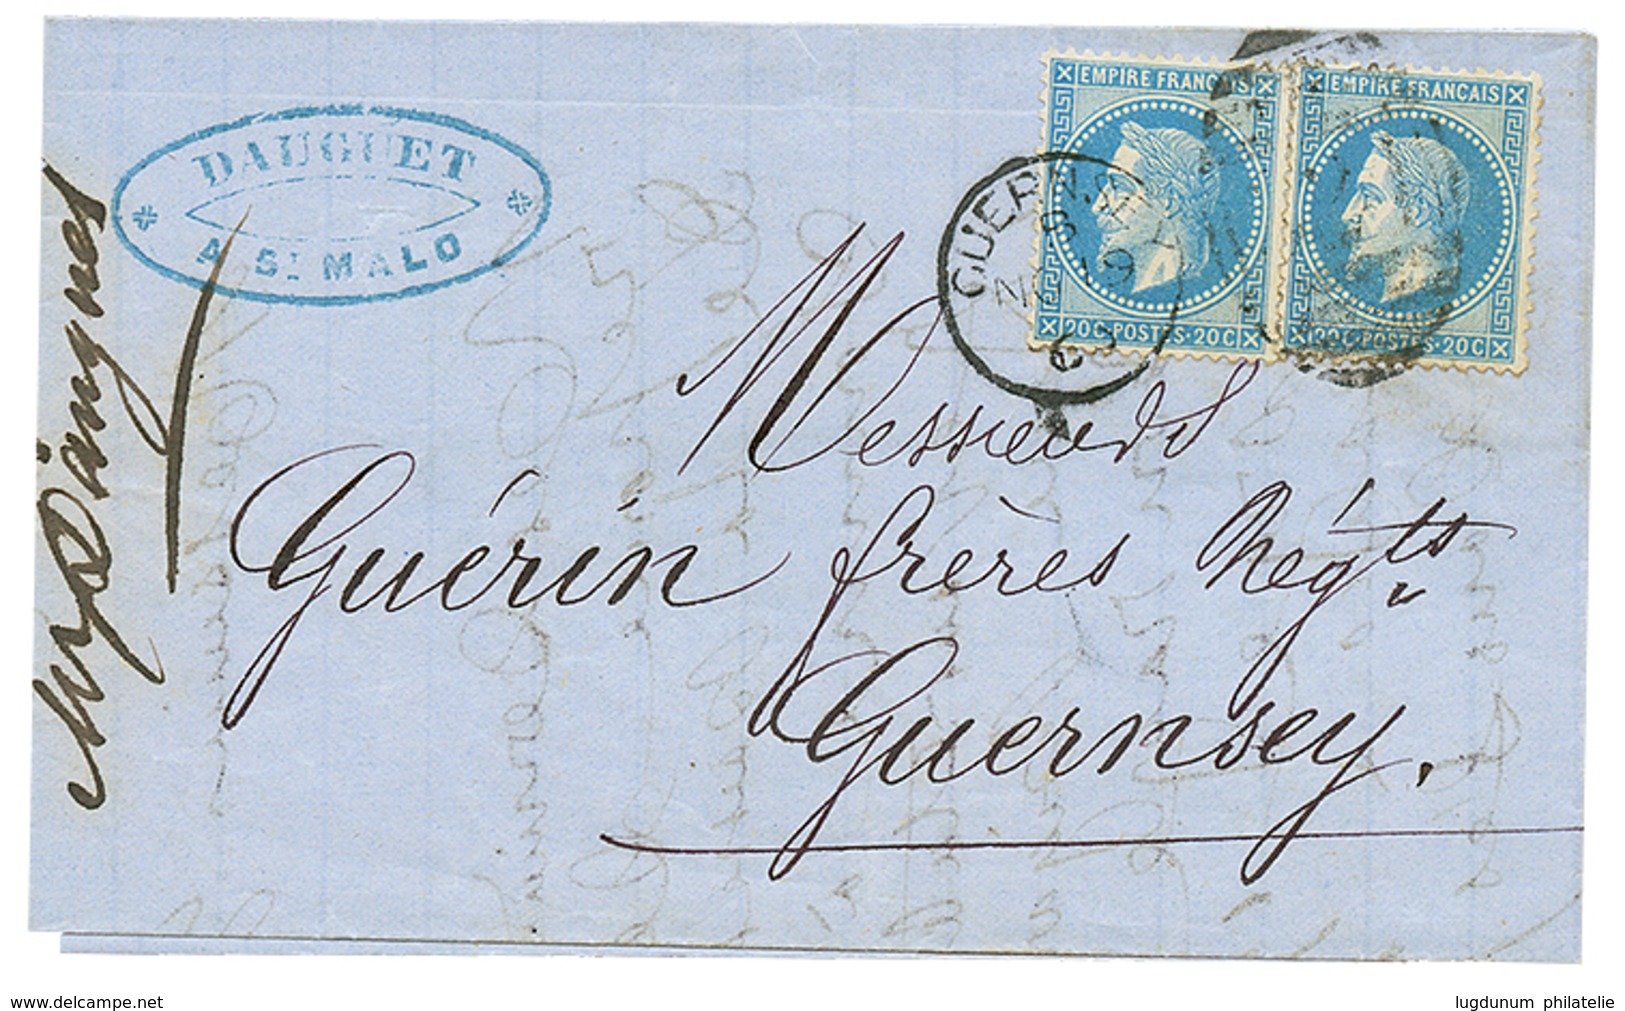 DAUGUET
A ST MALO
EMPIRE FRANCAIS
20C·POSTES·20C
EMPIRE FRANCAIS
20C·POSTES·20C
GUERNSEY
9
Messieurs
Guérin frères Négts
Guernsey.
www.delcampe.com
lugdunum philatelie